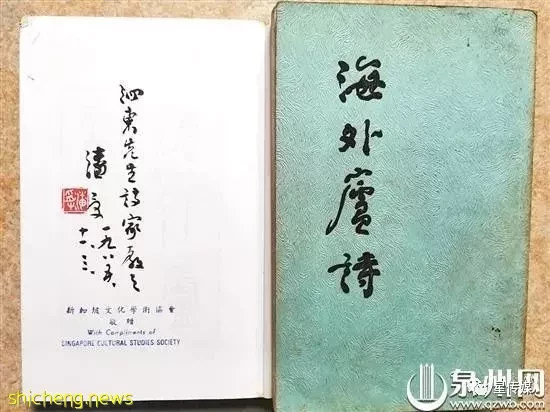 泗東先生詩家教之
潘受
一九八五、
十一、三
新加坡文化學術協會
敬贈
With Compliments of
SINGAPORE CULTURAL STUDIES SOCIETY
海外廬詩
shicheng.news
泉州网